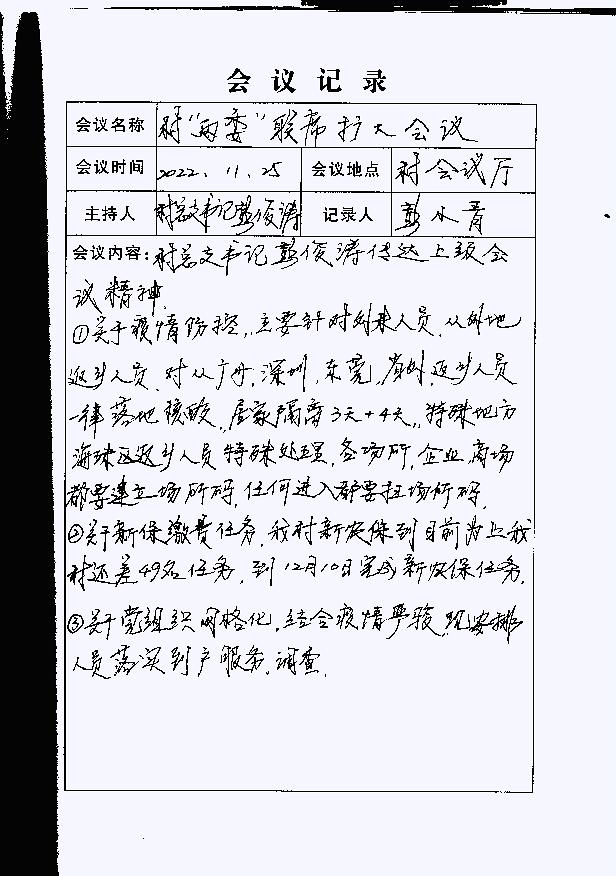 会议记录
会议名称 村“两委”联席扩大会议
会议时间 2022.11.25 会议地点 村会议厅
主持人 村总支书记彭俊涛 记录人 彭水青
会议内容:村总支书记彭俊涛传达上级会
议精神.
①关于疫情防控,主要针对外来人员,从外地
返乡人员,对从广州,深圳,东莞,省外,返乡人员
一律落地核酸,居家隔离3天+4天,特殊地方
海珠区返乡人员特殊处理,各场所,企业,商场
都要建立场所码,任何进入都要扫场所码.
②关于新保缴费任务,我村新农保到目前为止我
村还差49名任务,到12月10日完成新农保任务.
③关于党组织网格化,结合疫情严峻,现安排
人员落实到户服务,调查.